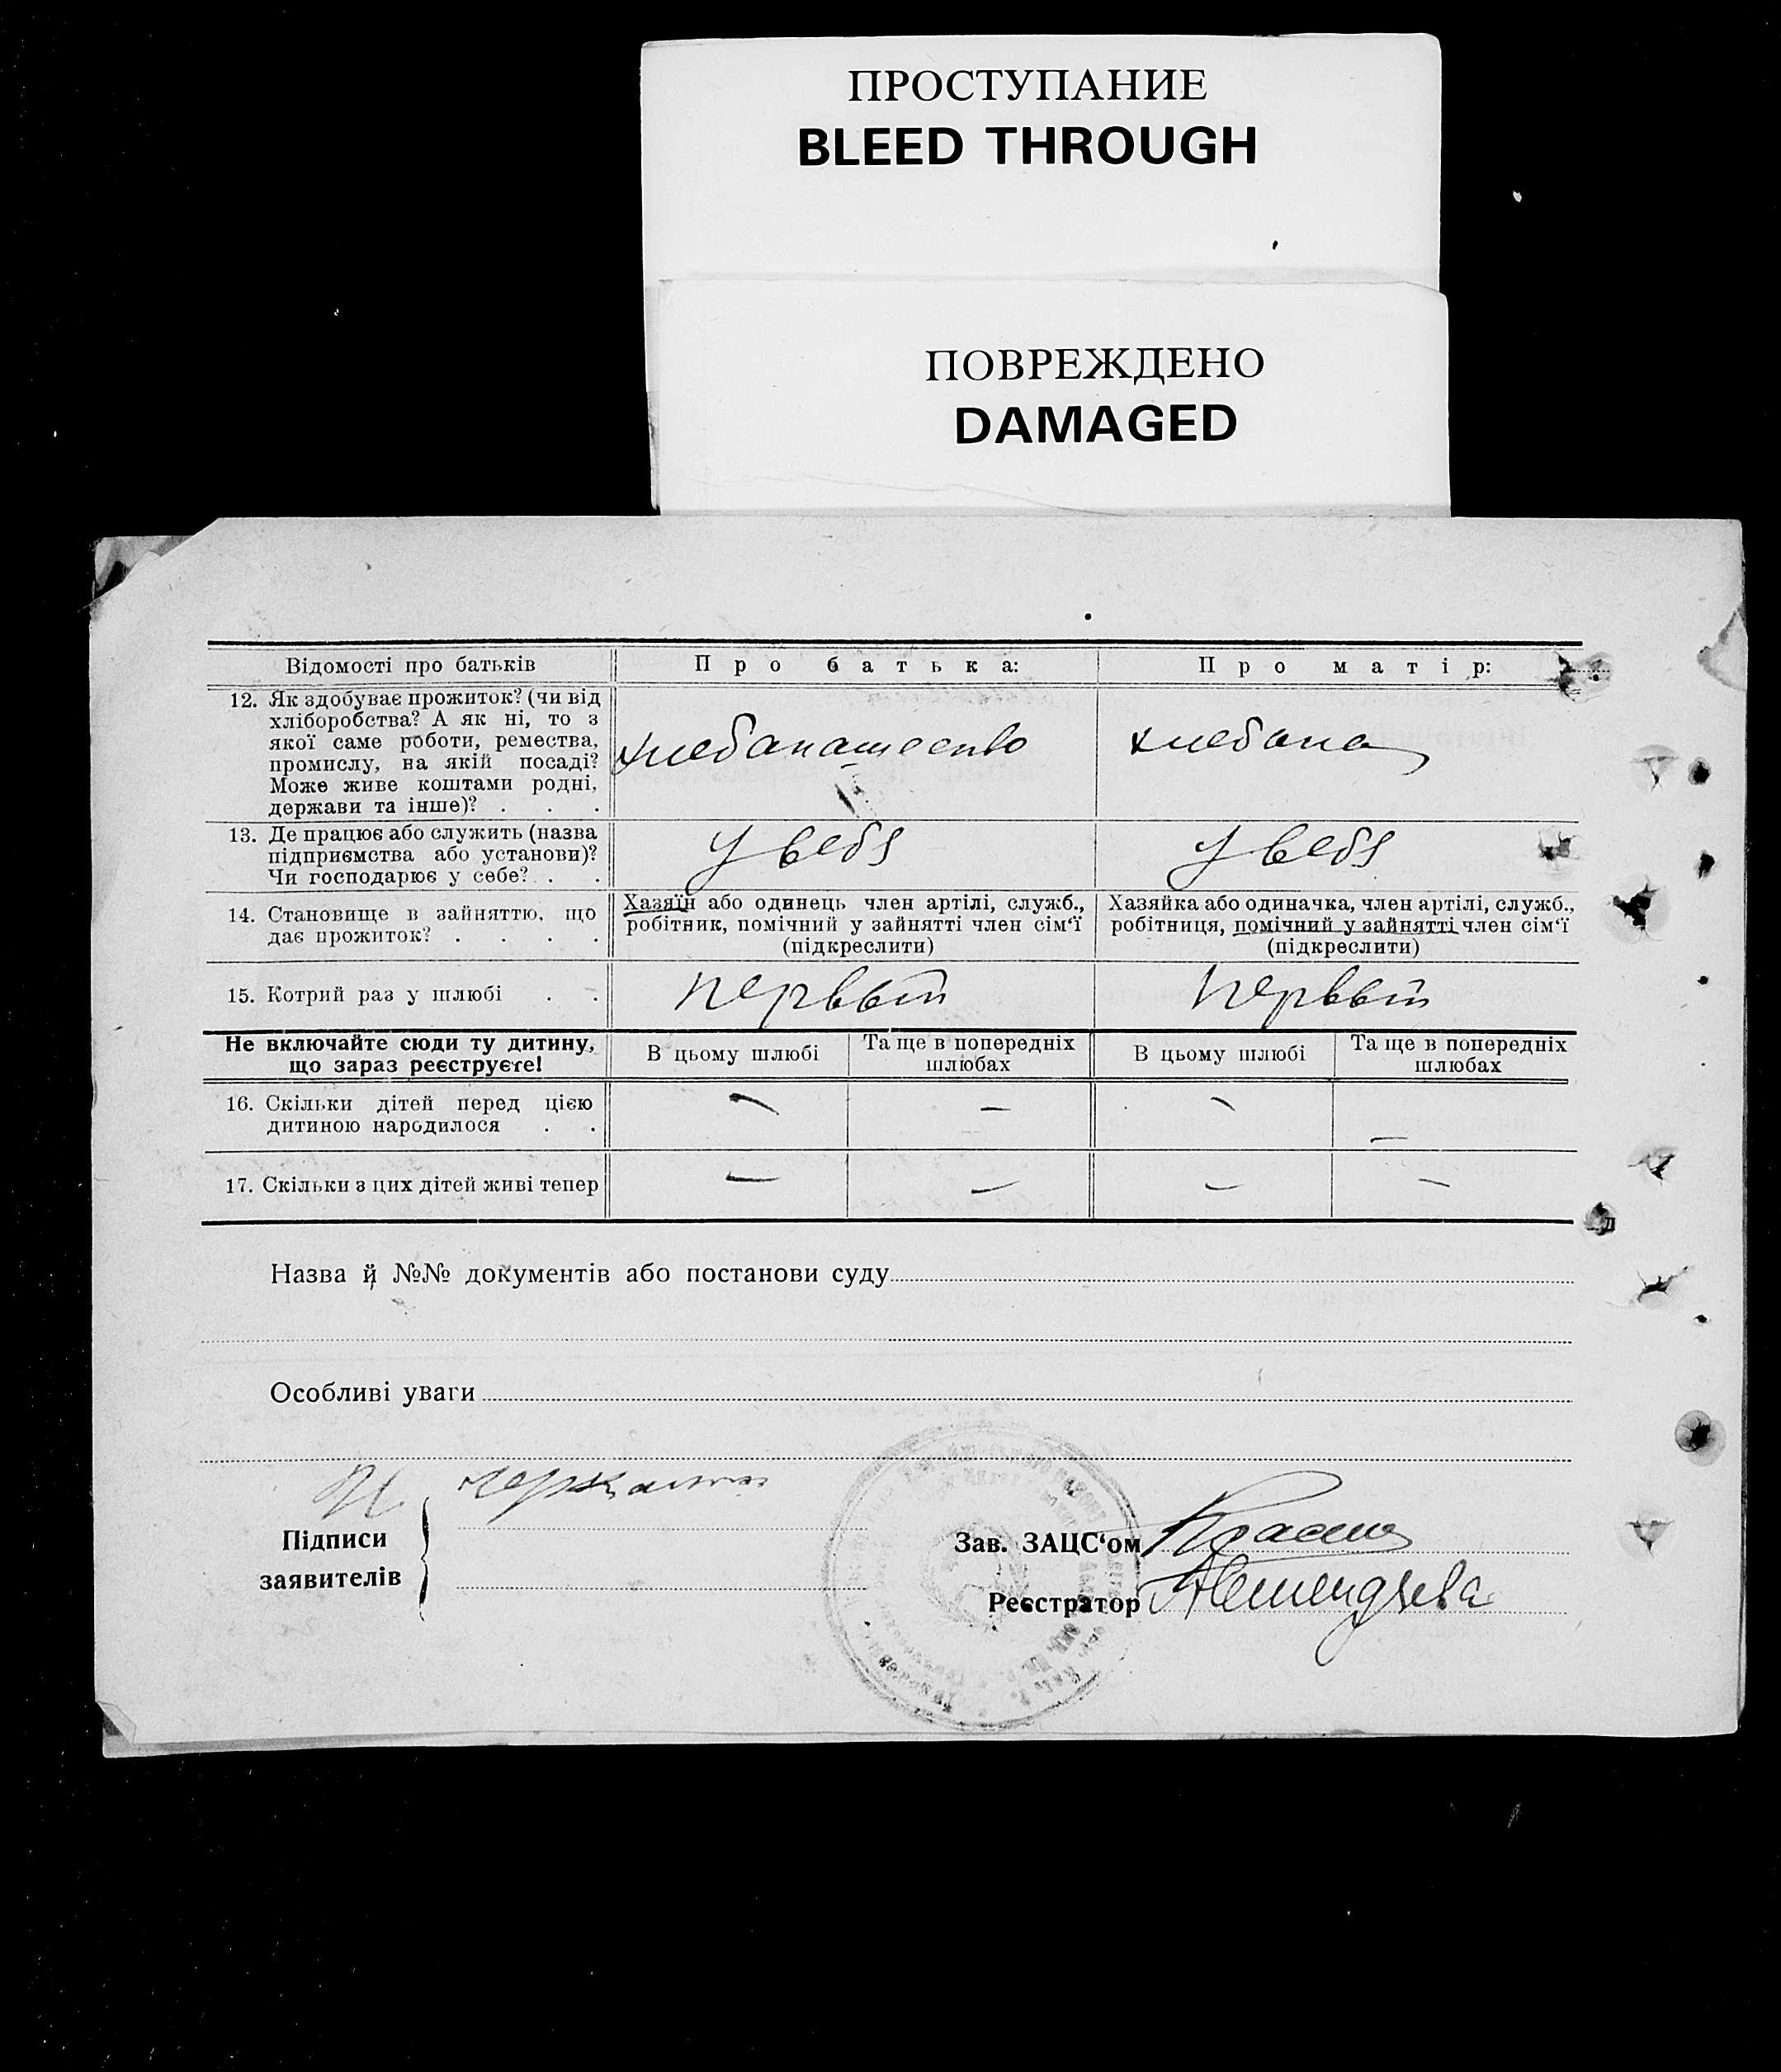 ПРОСТУПАНИЕ
BLEED THROUGH
ПОВРЕЖДЕНО
DAMAGED
Відомості про батьків
Про батька:
Про матір:
12. Як здобуває прожиток? (чи від
хліборобства? А як ні, то з
якої саме роботи, ремества,
промислу, на якій посаді?
Може живе коштами родні,
держави та інше)? . . .
хлебопашество
хлебопа
13. Де працює або служить (назва
підприємства або установи)?
Чи господарює у себе? . .
У себя
У себя
14. Становище в зайняттю, що
дає прожиток? . . . .
Хазяїн або одинець член артілі, служб.,
робітник, помічний у зайнятті член сім‘ї
(підкреслити)
Хазяйка або одиначка, член артілі, служб.,
робітниця, помічний у зайнятті член сім‘ї
(підкреслити)
15. Котрий раз у шлюбі . .
первый
первый
Не включайте сюди ту дитину,
що зараз реєструєте!
В цьому шлюбі
Та ще в попередніх
шлюбах
В цьому шлюбі
Та ще в попередніх
шлюбах
16. Скільки дітей перед цією
дитиною народилося . .
— — — —
17. Скільки з цих дітей живі тепер
— — — —
Назва й №№ документів або постанови суду
Особливі уваги
Підписи
заявителів
Зав. ЗАЦС‘ом
Реєстратор